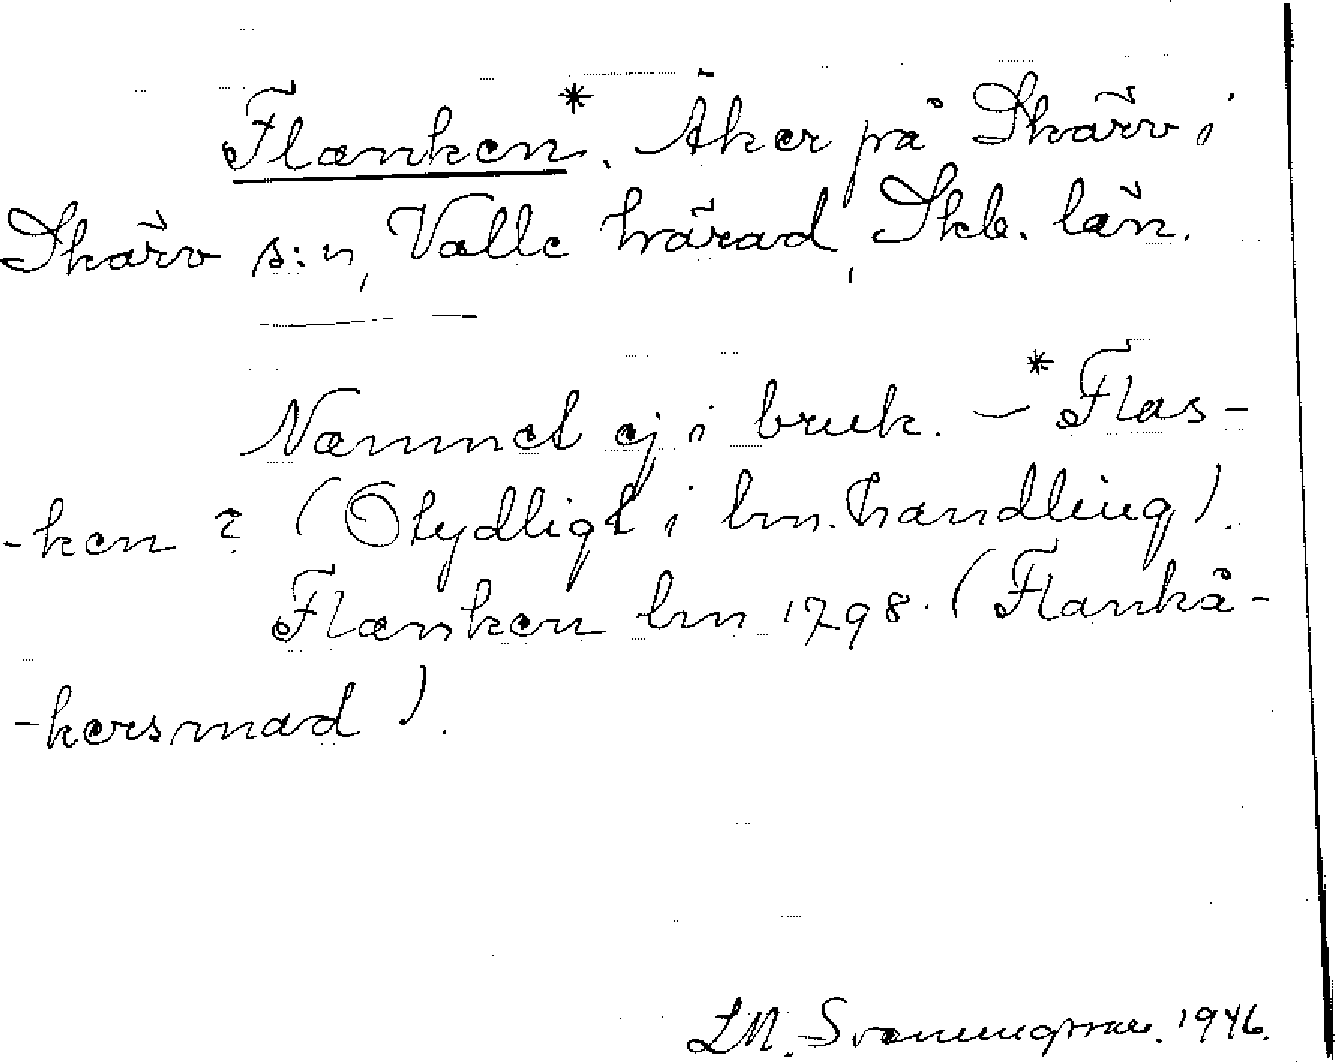 Flanken*. Åker på Skärv i
Skärv s:n, Valle härad, Skb. län.
Namnet ej i bruk. — *Flas-
-ken? (Otydligt i lm. handling).
Flanken lm 1798. (Flankå-
-kersmad).
L.M. Svanungsson. 1946.